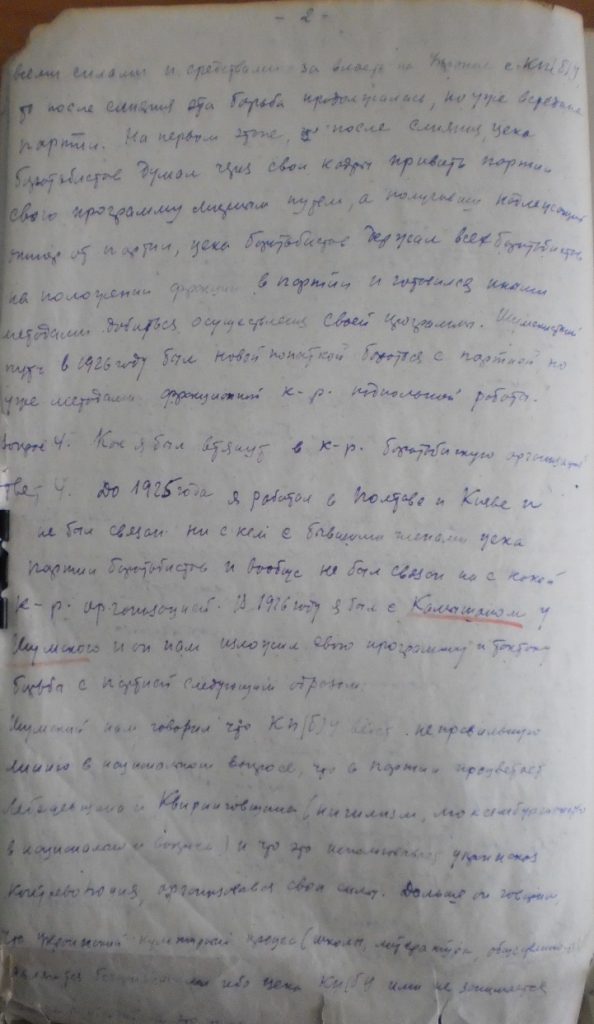 - 2 -
всеми силами и средствами за власть на Украине с КП(б)У,
то после слияния эта борьба продолжалась, но уже всередине
партии. На первом этапе, после слияния, цека
боротьбистов думал через свои кадры привить партии
свою программу мирным путем, а получивши надлежащий
отпор от партии, цека боротьбистов держал всех боротьбистов
на положении фракции в партии и готовился иными
методами добиться осуществления своей программы. Шумскистский
путч в 1926 году был новой попыткой бороться с партией но
уже методами фракционной к-р. подпольной работы.
Вопрос 4. Как я был втянут в к-р. боротьбистскую организацию
Ответ 4. До 1925 года я работал в Полтаве и Киеве и
не был связан ни с кем с бывшими членами цека
партии боротьбистов и вообще не был связан ни с какой
к-р. организацией. В 1926 году я был с Камышаном у
Шумского и он нам изложил свою программу и тактику
борьбы с партией следующим образом.
Шумский нам говорил что КП(б)У ведет неправильную
линию в национальном вопросе, что в партии процветает
Лебедевщина и Квиринговщина (нигилизм, люксембургианство
в национальном вопросе) и что это использовывая украинская
контрреволюция, организовывая свои силы. Дальше он говорил,
что украинский культурный процесс (школы, литература,
ибо цека КП(б)У ими не занимается